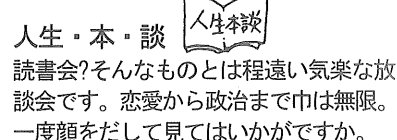 人生本談
人生・本・談
読書会?そんなものとは程遠い気楽な放
談会です。恋愛から政治まで巾は無限。
一度顔をだして見てはいかがですか。